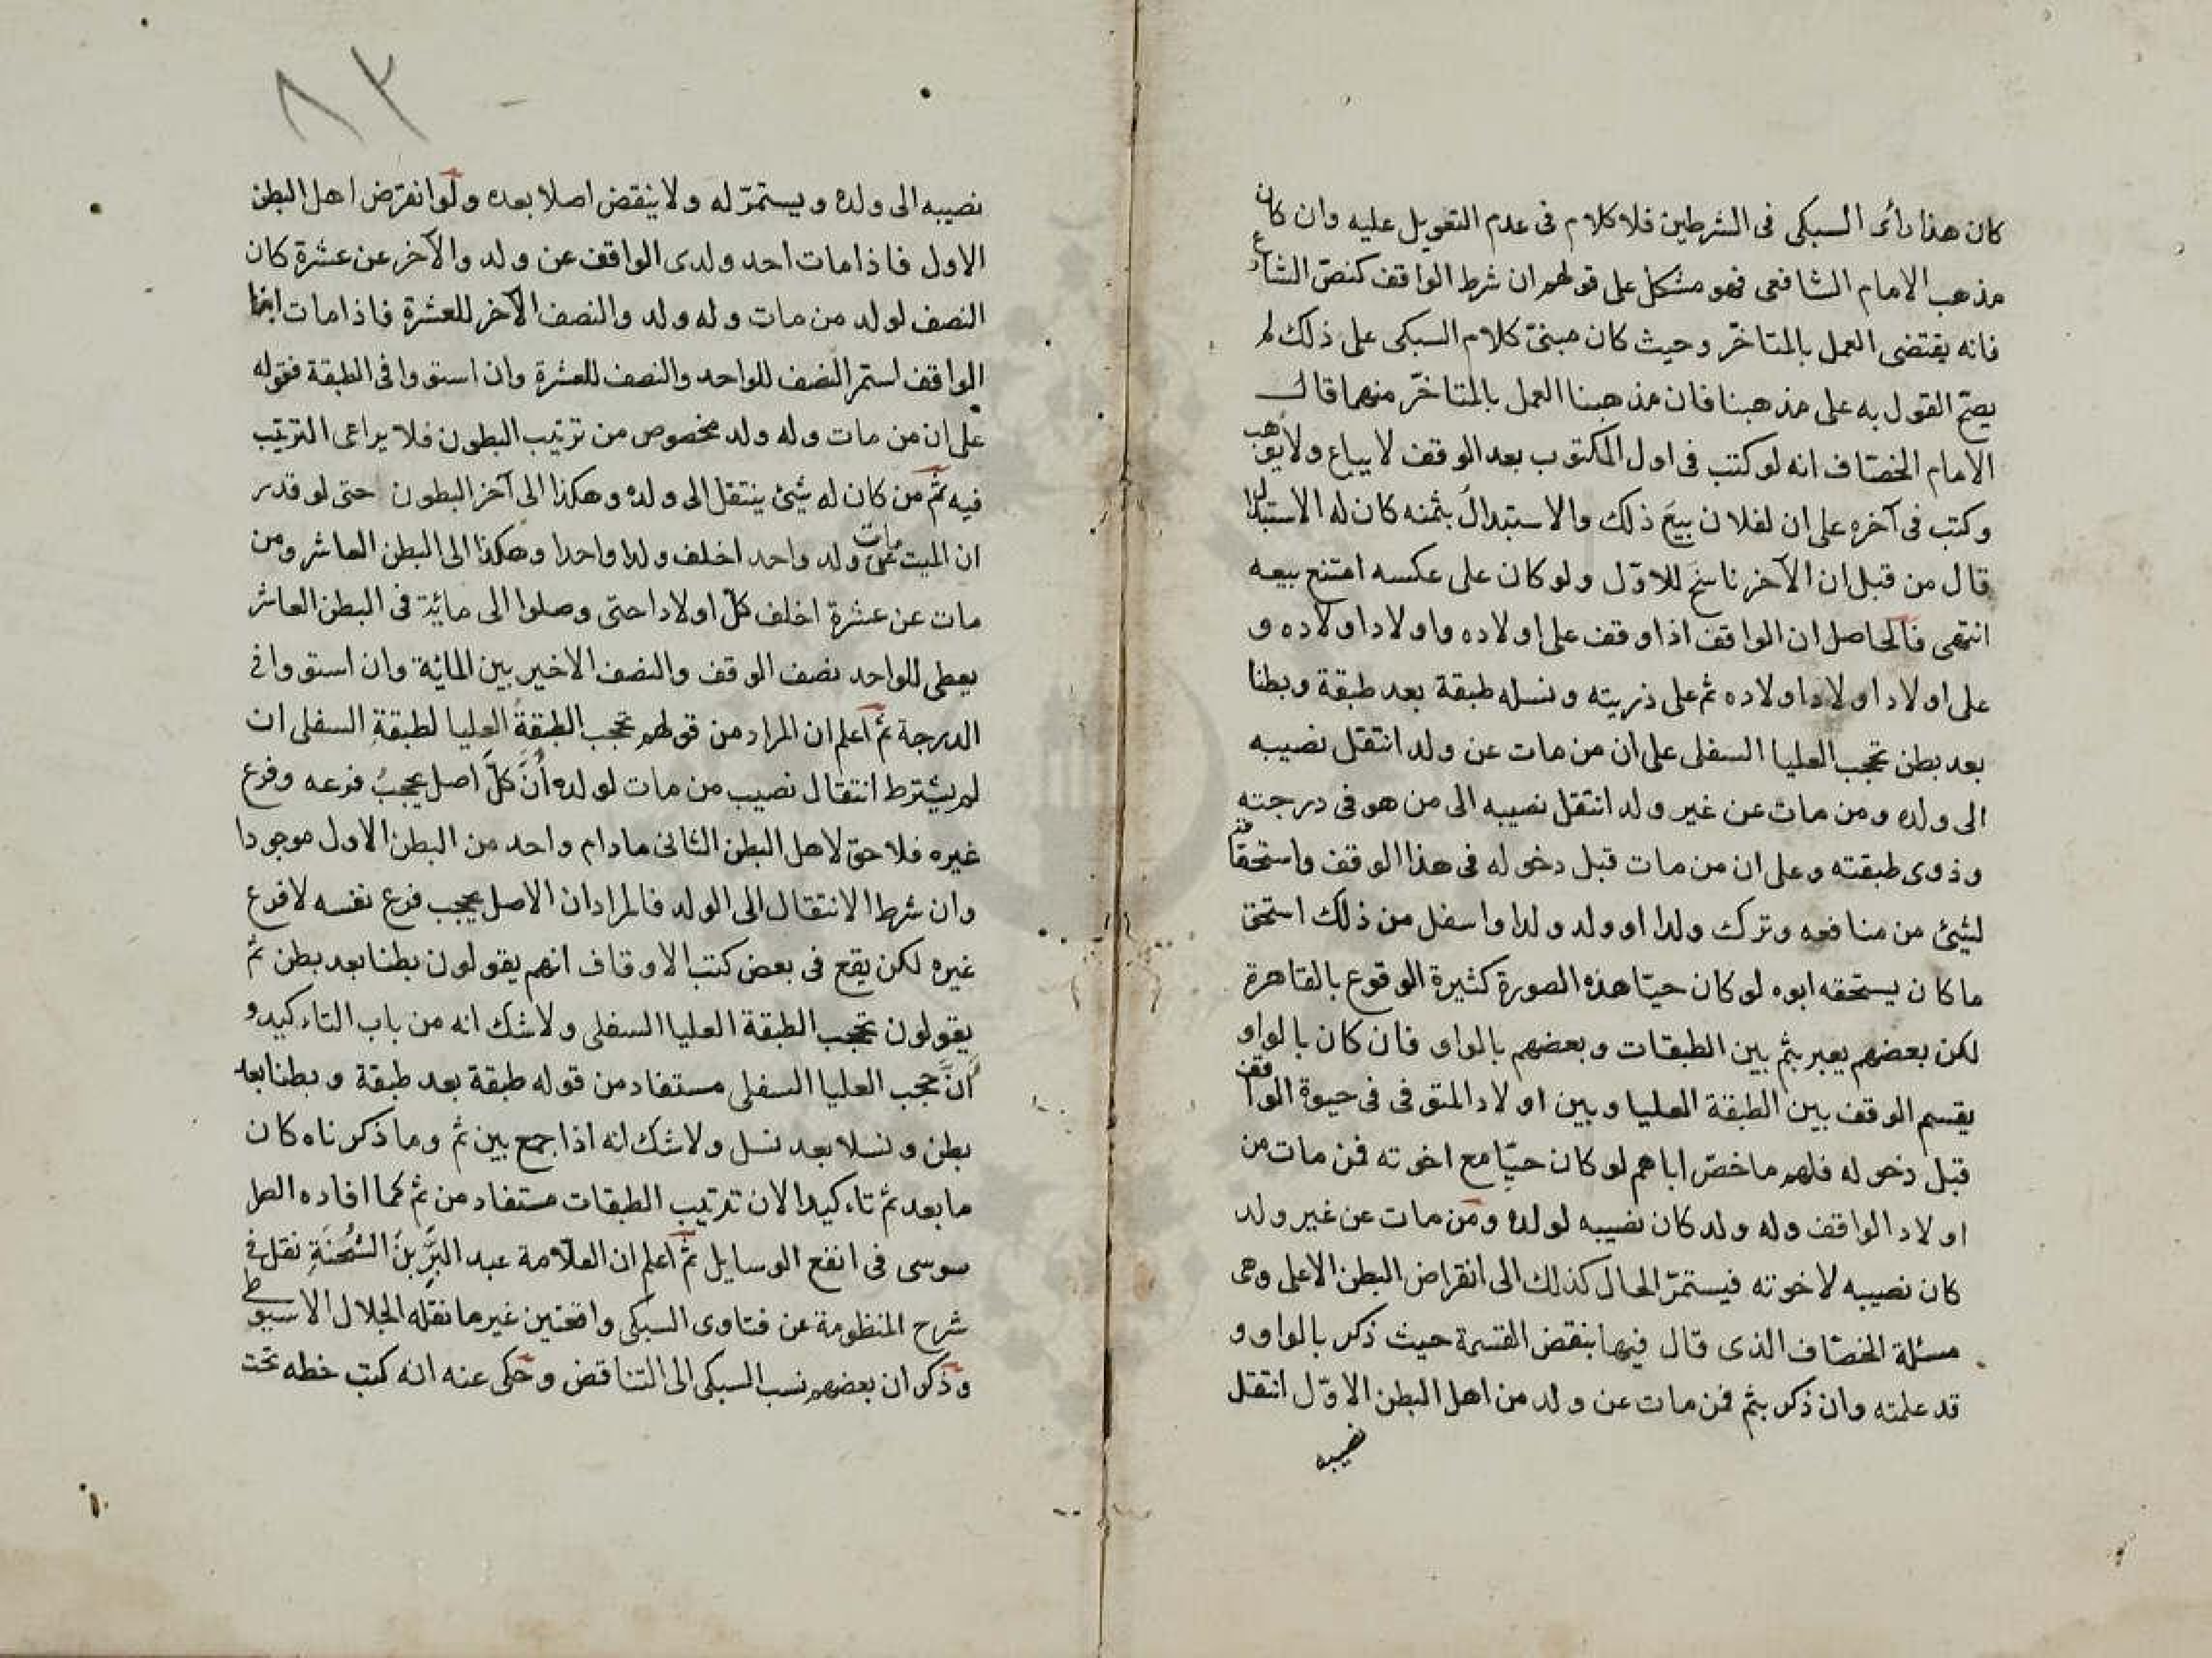 كان هذا رأى السبكى فى الشرطين فلا كلام فى عدم التعويل عليه وان كان
مذهب الامام الشافعى فهو مشكل على قولهم ان شرط الواقف كنصّ الشارع
فانه يقتضى العمل بالمتأخّر وحيث كان مبنىّ كلام السبكى على ذلك لم
يصحّ القول به على مذهبنا فان مذهبنا العمل بالمتاخّر منهما قال
الامام الخصّاف انه لو كتب فى اول المكتوب بعد الوقف لا يباع ولا يوهب
وكتب فى آخره على ان لفلان بيعَ ذلك والاستبدالَ بثمنه كان له الاستبدال
قال من قبل ان الآخر ناسخ للاوّل ولو كان على عكسه امتنع بيعه
انتهى فالحاصل ان الواقف اذا وقف على اولاده واولاد اولاده و
على اولاد اولاد اولاده ثم على ذريته ونسله طبقة بعد طبقة وبطنا
بعد بطن تحجب العليا السفلى على ان من مات عن ولد انتقل نصيبه
الى ولده ومن مات عن غير ولد انتقل نصيبه الى من هو فى درجته
وذوى طبقته وعلى ان من مات قبل دخوله فى هذا الوقف واستحقاقه
لشيئ من منافعه وترك ولدا او ولد ولدا واسفل من ذلك استحق
ما كان يستحقه ابوه لو كان حيّا هذه الصورة كثيرة الوقوع بالقاهرة
لكن بعضهم يعبر بثم بين الطبقات وبعضهم بالواو فان كان بالواو
يقسم الوقف بين الطبقة العليا وبين اولاد المتوفى فى حيوة الواقف
قبل دخوله فلهم ما خصّ اباهم لو كان حيّا مع اخوته فمن مات من
اولاد الواقف وله ولد كان نصيبه لولده ومن مات عن غير ولد
كان نصيبه لاخوته فيستمرّ الحال كذلك الى انقراض البطن الاعلى وهى
مسئلة الخصّاف الذى قال فيها بنقض القسمة حيث ذكر بالواو و
قد علمته وان ذكر بثم فمن مات عن ولد من اهل البطن الاوّل انتقل
نصيبه
٨٢
نصيبه الى ولده ويستمرّ له ولا ينقض اصلا بعده ولو انقرض اهل البطن
الاول فاذا مات احد ولدى الواقف عن ولد والآخر عن عشرة كان
النصف لولد من مات وله ولد والنصف الآخر للعشرة فاذا مات ابنا
الواقف استمر النصف للواحد والنصف للعشرة وان استووا فى الطبقة فقوله
على ان من مات وله ولد مخصوص من ترتيب البطون فلا يراعى الترتيب
فيه ثم من كان له شيئ ينتقل الى ولده وهكذا الى آخر البطون حتى لو قدر
ان الميت مات عن ولد واحد اخلف ولدا واحدا وهكذا الى البطن العاشر ومن
مات عن عشرة اخلف كلّ اولادا حتى وصلوا الى مائة فى البطن العاشر
يعطى للواحد نصف الوقف والنصف الاخير بين المائة وان استووا فى
الدرجة ثم اعلم ان المراد من قولهم تحجب الطبقةُ العليا لطبقةِ السفلى ان
لم يشترط انتقال نصيب من مات لولده أنّ كلّ اصل يحجبُ فرعه وفرع
غيره فلا حق لاهل البطن الثانى مادام واحد من البطن الاول موجودا
وان شرط الانتقال الى الولد فالمراد ان الاصل يحجب فرع نفسه لا فرع
غيره لكن يقع فى بعض كتب الاوقاف انهم يقولون بطنا بعد بطن ثم
يقولون تحجب الطبقة العليا السفلى ولا شك انه من باب التاءكيد و
انّ حجب العليا السفلى مستفاد من قوله طبقة بعد طبقة وبطنا بعد
بطن ونسلا بعد نسل ولا شك انه اذا جمع بين ثم وما ذكرناه كان
ما بعد ثم تاءكيدا لان ترتيب الطبقات مستفاد من ثم كما افاده الطر
سوسى فى انفع الوسايل ثم اعلم ان العلاّمة عبد البَرِّ بنَ الشُّحْنَةِ نقل فى
شرح المنظومة عن فتاوى السبكى واقعتين غير ما نقله الجلال الاسيوطى
وذكر ان بعضهم نسب السبكى الى التناقض وحكى عنه انه كتب خطه تحت